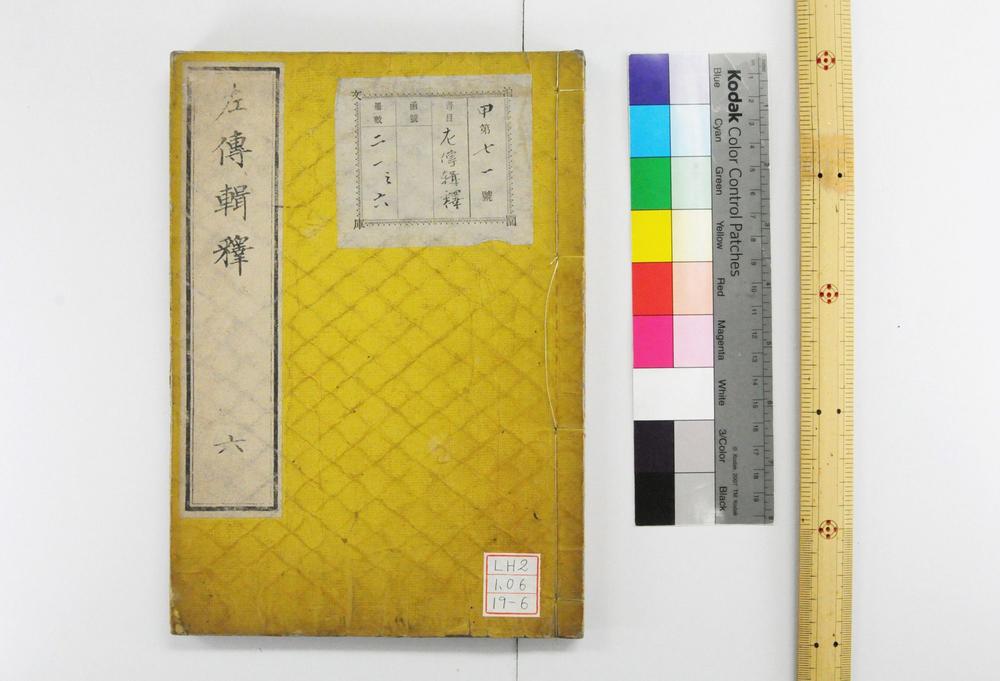 左傳輯釋
六
泊園文庫
甲第七一號
書目
左傳輯釋
函號
冊數
二一之六
LH2
1.06
19-6
Kodak Color Control Patches
Blue
Cyan
Green
Yellow
Red
Magenta
White
3/Color
Black
© Kodak, 2007 TM: Kodak